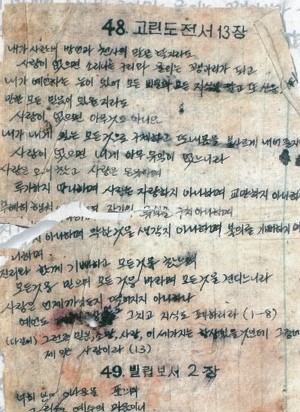 48. 고린도전서 13장
내가 사람의 방언과 천사의 말을 할지라도
사랑이 없으면 소리나는 구리와 울리는 꽹과리가 되고
내가 예언하는 능이 있어 모든 비밀과 모든 지식을 알고 또 산을
만한 모든 믿음이 있을지라도
사랑이 없으면 아무것도 아니요
내가 내게 있는 모든것으로 구제하고 또 내몸을 불사르게 내어줄지
사랑이 없으면 내게 아무 유익이 없느니라
사랑은 오래 참고 사랑은 온유하며
투기하지 아니하며 사랑은 자랑하지 아니하며 교만하지 아니하
무례히 행치 자기의 유익을 구치 아니하며
아니하며 악한것을 생각지 아니하며 불의를 기뻐하지 아
니하며
진리와 함께 기뻐하고 모든것을 참으며
모든것을 믿으며 모든것을 바라며 모든것을 견디느니라
사랑은 언제까지든지 떨어지지 아니하나
예언도 그치고 지식도 폐하리라 (1-8)
그런즉 믿음, 소망, 사랑, 이 세가지는 항상 있을것인데 그중에
제일은 사랑이라 (13)
49. 빌립보서 2장
너희 안에 이 마음을 품으라
그리스도 예수의 마음이니